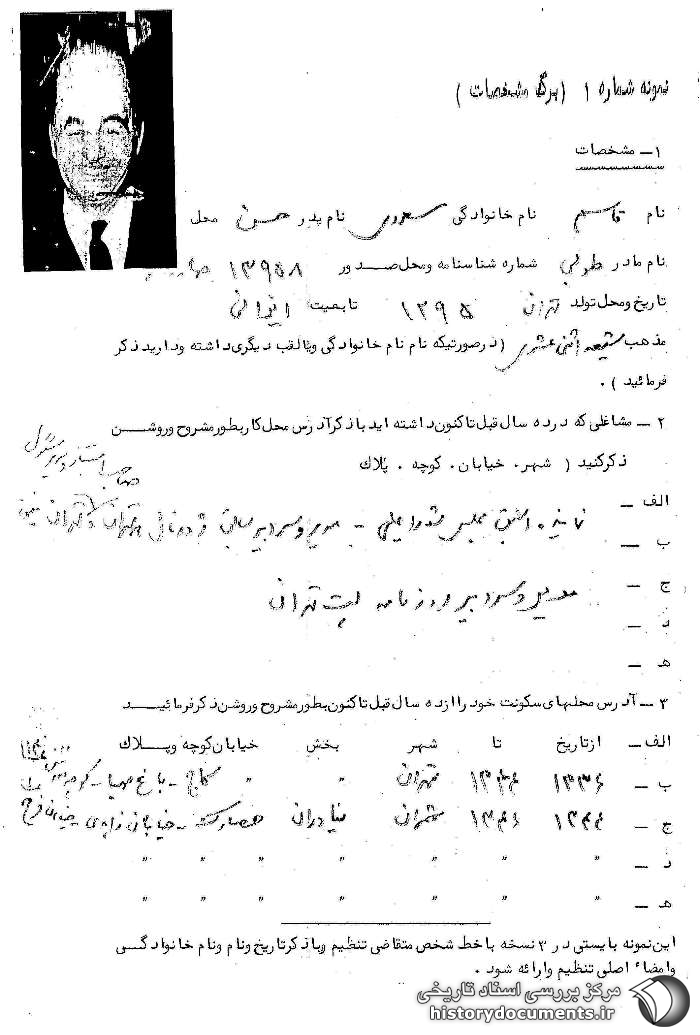 نمونه شماره ۱ (برگ مشخصات)
۱ـ مشخصات
نام قاسم نام خانوادگی مسعودی نام پدر حسین محل
نام مادر طوبی شماره شناسنامه ومحل صدور ۱۳۹۵۸
تاریخ ومحل تولد تهران ۱۲۹۵ تابعیت ایرانی
مذهب شیعه اثنی عشری (درصورتیکه نام نام خانوادگی ویالقب دیگری داشته ودارید ذکر
فرمائید) .
۲ ـ مشاغلی که درده سال قبل تاکنون داشته اید باذکرآدرس محل کاربطورمشروح وروشن
ذکرکنید ( شهر، خیابان ، کوچه ، پلاک
صاحب امتیاز ومدیر مسئول
الف ـ
نماینده اسبق مجلس شورایملی ـ مدیر وسردبیر سابق ژورنال دوتهران
ب ـ
ج ـ
مدیر وسردبیر روزنامه پست تهران
د ـ
هـ ـ
۳ ـ آدرس محلهای سکونت خود راازده سال قبل تاکنون بطورمشروح وروشن ذکرفرمائیـد
الف ـ ازتاریخ تا شهر بخش خیابان کوچه وپـلاک
ب ـ ۱۳۳۶ ۱۳۴۴ تهران " " کاخ ـ باغ صبا ـ کوچه
ج ـ ۱۳۴۴ ۱۳۴۶ شمران نیاوران حصارک ـ خیابان زاهدی ـ خیابان فرح
د ـ " " " " " "
هـ ـ " " " " " "
این نمونه بایستی در ۳ نسخه باخط شخص متقاضی تنظیم وباذکرتاریخ ونام ونام خانوادگـی
وامضاء اصلی تنظیم وارائه شود .
مرکز بررسی اسناد تاریخی
historydocuments.ir